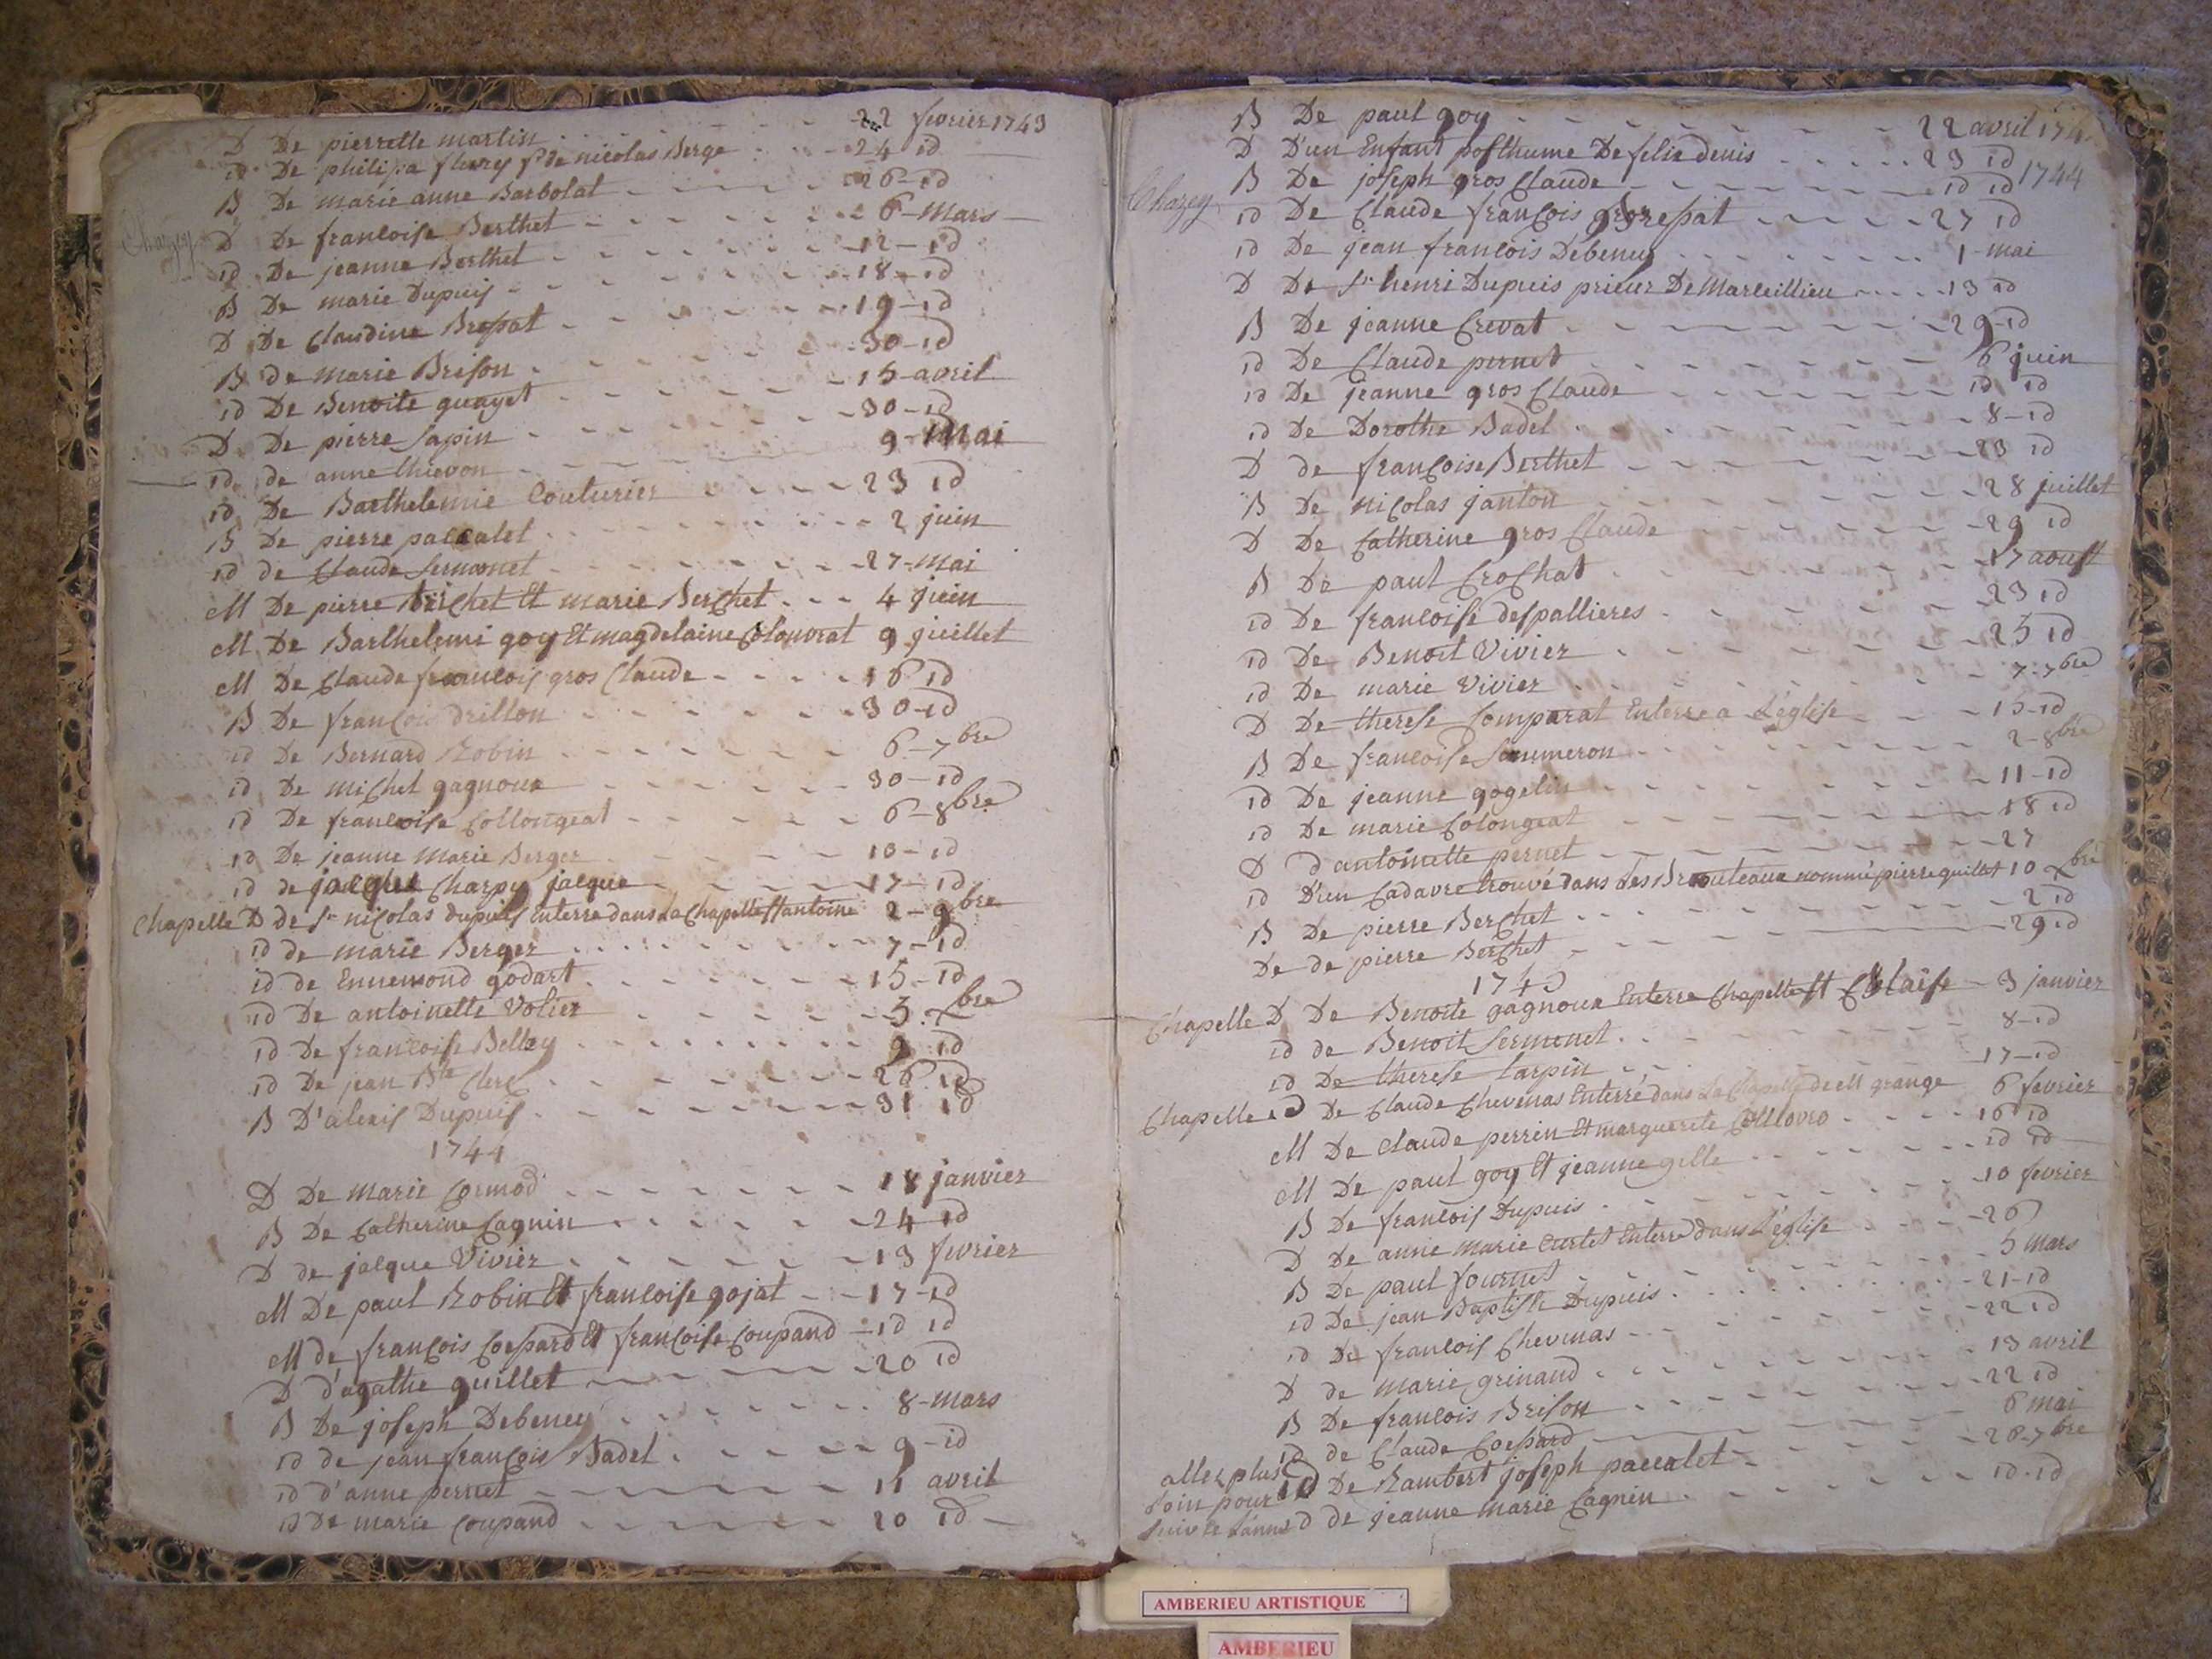 D De pierrette martin - - - 22 fevrier 1743
id De philipa fleury fe de nicolas Berge - - 24 id
B De marie anne Barbolat - - - 26 - id
Chazey
D De francoise Berthet - - - 6 - Mars
id De jeanne Berthet - - - 12 - id
B De marie Dupuis - - - 18 - id
D De Claudine Bressat - - - 19 - id
B de marie Brison - - - 30 - id
id De Benoite guayet - - - 15 avril
D De pierre Sapin - - - 30 - id
id de anne thievon - - - 9 - Mai
id De Barthelemie Couturier - - - 23 id
B De pierre paccalet - - - 2 juin
id de Claude Sermonet - - - 27 - Mai
M De pierre Berchet Et marie Berchet - - - 4 juin
M De Barthelemi goy Et magdelaine Colouvrat 9 juillet
M De Claude francois gros Claude - - - 16 id
B De francois drillon - - - 30 - id
id De Bernard Robin - - - 6 - 7bre
id De michel gagnoux - - - 30 - id
id De francoise Collongeat - - - 6 - 8bre
id De jeanne Marie Berger - - - 10 - id
id de jacques Charpy jacque - - - 17 - id
Chapelle D de Sr nicolas dupuis Enterre dans La Chapelle St antoine 2 - 9bre
id de marie Berger - - - 7 - id
id de Ennemond godart - - - 15 - id
id De antoinette Volier - - - 5 - xbre
id De francoise Belley - - - 9 id
id De jean Bte Clerc - - - 26 id
B D'alexis Dupuis - - - 31 id
1744
D De marie Cormod - - - 18 janvier
B De Catherine Cagnin - - - 24 id
D de jacque Vivier - - - 13 fevrier
M De paul Robin Et francoise gojat - - 17 - id
M de francois Coessard Et francoise Coupand - id id
D d'agathe quillet - - - 20 id
B De joseph Debeney - - - 8 - mars
id de jean francois Badel - - - 9 - id
id d'anne pernet - - - 11 avril
id De marie Coupand - - - 20 id
B De paul goy - - - 22 avril
D D'un Enfant posthume De felix denis - - - 23 id
1744
B De joseph gros Claude - - - id id
Chazey
id De Claude francois - - - 27 id
id De jean francois Debeney - - - 1 - mai
D De Sr henri Dupuis prieur De Marcillieu - - - 13 id
B De jeanne Crevat - - - 29 - id
id De Claude pernet - - - 6 juin
id De jeanne gros Claude - - - id id
id De Dorothe Badel - - - 8 - id
D de francoise Berthet - - - 23 id
B De nicolas janton - - - 28 juillet
D De Catherine gros Claude - - - 29 id
B De paul Crochat - - - 17 aoust
id De francoise despallieres - - - 23 id
id De Benoit Vivier - - - 25 id
id De marie Vivier - - - 7 - 7bre
D De therese Comparat Enterre a L'eglise - - - 15 - id
B De francoise Sommeron - - - 2 - 8bre
id De jeanne gogelin - - - 11 - id
id De marie Colongeat - - - 18 id
D d antoinette pernet - - - 27
id D'un Cadavre trouvé dans des Brouteaux nommé pierre quillet 10 xbre
B De pierre Berchet - - - 2 id
De de pierre Berchet - - - 29 id
1745
Chapelle D De Benoite gagnoux Enterre Chapelle St Blaise - 3 janvier
id de Benoit Sermonet - - - 8 - id
id De therese tarpin - - - 17 - id
Chapelle id De Claude Chevenas Enterré dans La Chapelle de M grange 6 fevrier
M De claude perrin Et marguerite - - - 16 id
M De paul goy Et jeanne gelle - - - id id
B De francois Dupuis - - - 10 fevrier
D De anne marie Curtet Enterré dans L'eglise - - - 26
B De paul fournet - - - 5 mars
id De jean Baptiste Dupuis - - - 21 - id
id De francois Chevenas - - - 22 id
D de marie grinand - - - 13 avril
B De francois Brison - - - 22 id
id de Claude Coessard - - - 6 mai
id De Rambert joseph paccalet - - - 28 - 7bre
D de jeanne marie Cagnin - - - id - id
allez plus
loin pour
suivre L'anné
AMBERIEU ARTISTIQUE
AMBERIEU